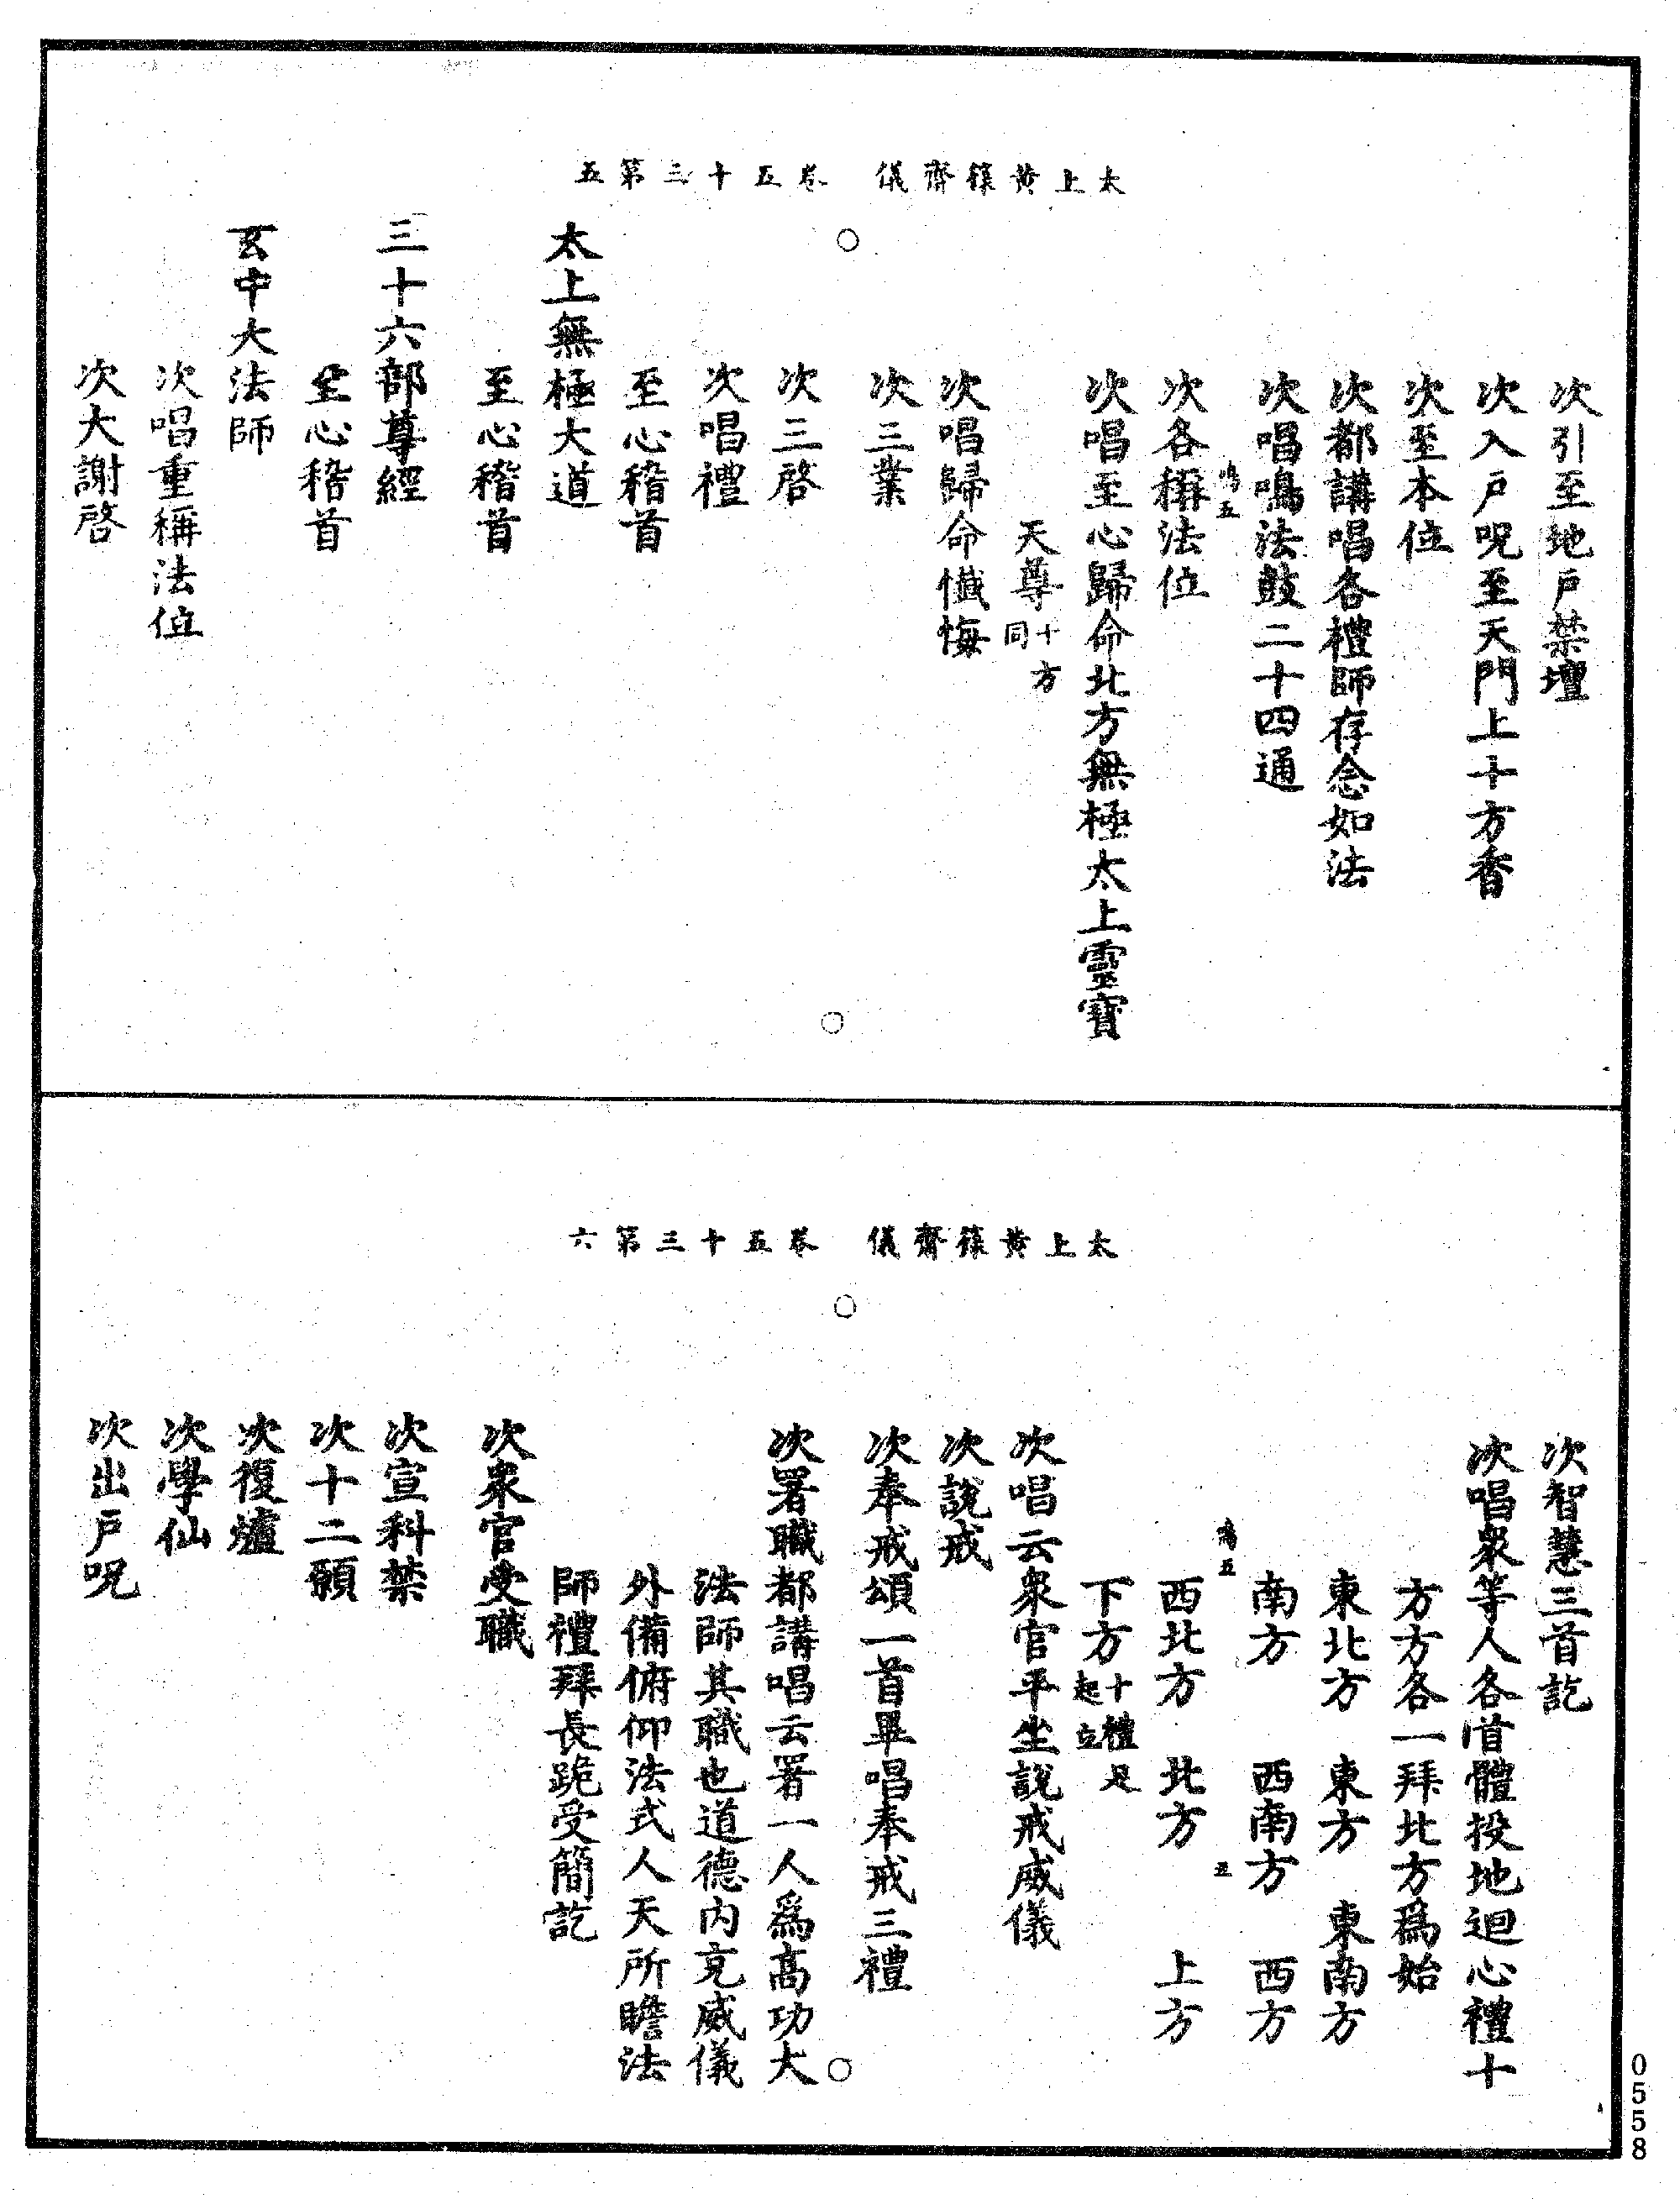 太上黃籙齋儀　卷五十三第五
次引至地戶禁壇
次入戶呪至天門上十方香
次至本位
次都講唱各禮師存念如法
次唱鳴法鼓二十四通
鳴五
次各稱法位
次唱至心歸命北方無極太上靈寶
天尊十方同
次唱歸命懺悔
次三業
次三啓
次唱禮
至心稽首
太上無極大道
至心稽首
三十六部尊經
至心稽首
玄中大法師
次唱重稱法位
次大謝啓
太上黃籙齋儀　卷五十三第六
次智慧三首訖
次唱衆等人各首體投地迴心禮十
方方各一拜北方爲始
東北方　東方　東南方
南方　西南方　西方
鳴五　五
西北方　北方　上方
下方十禮足起立
次唱云衆官平坐說戒威儀
次說戒
次奉戒頌一首畢唱奉戒三禮
次署職都講唱云署一人爲高功大
法師其職也道德內充威儀
外備俯仰法式人天所瞻法
師禮拜長跪受簡訖
次衆官受職
次宣科禁
次十二願
次復爐
次學仙
次出戶呪
0558